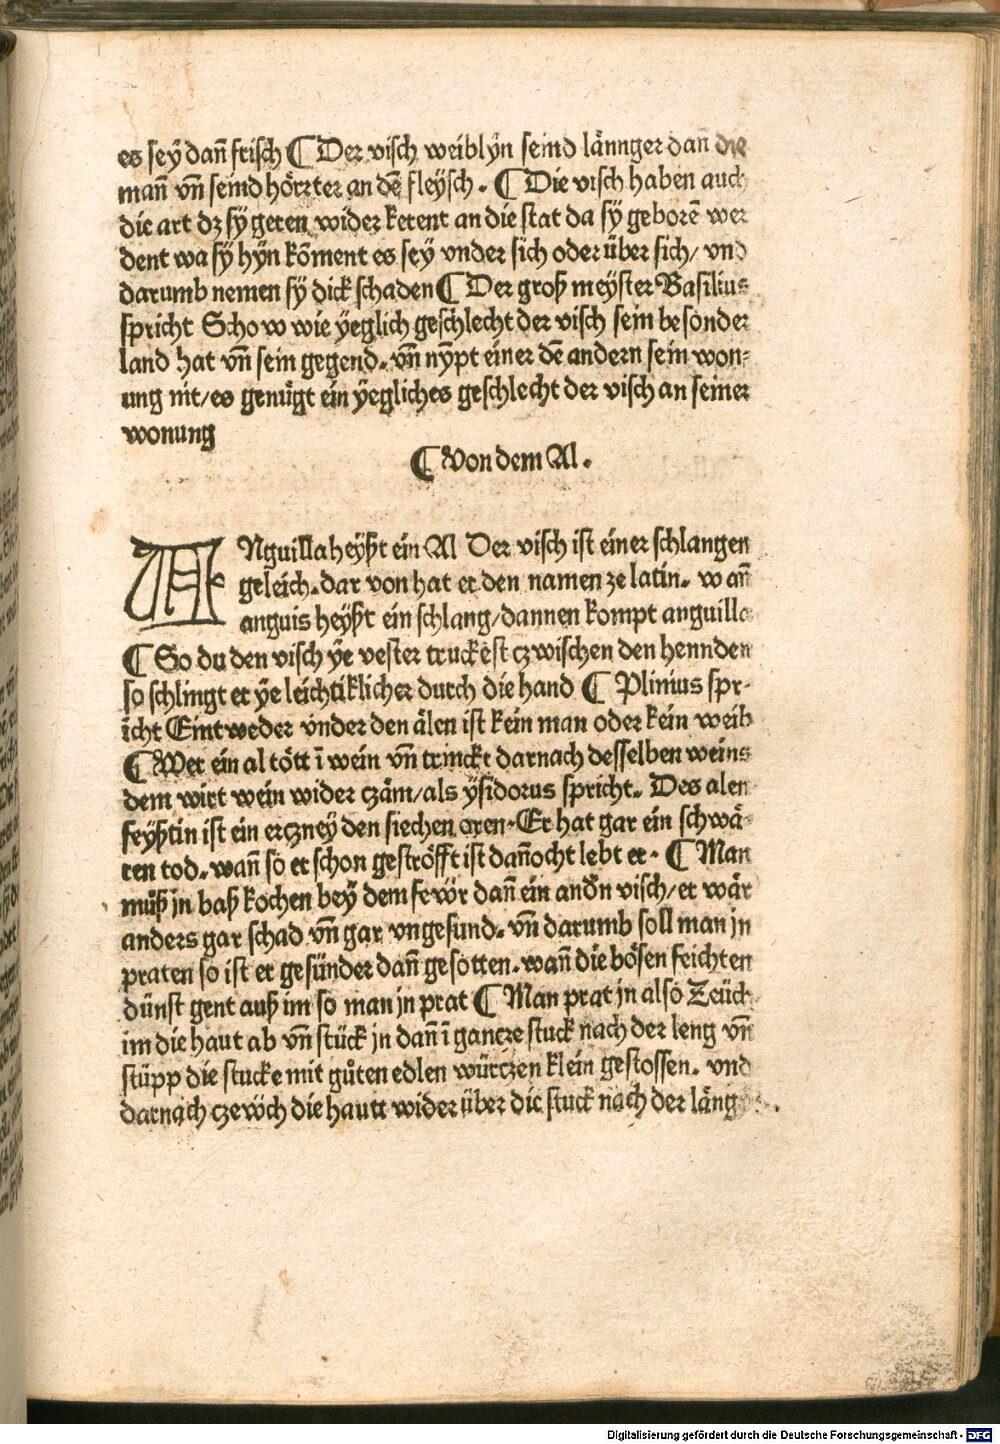 es seÿ dañ frisch ¶ Der visch weiblÿn seind lännger dañ die
mañ vñ seind hörtter an dē fleÿsch. ¶ Die visch haben auch
die art dz sÿ geren wider kerent an die stat da sÿ geborē wer
dent wa sÿ hÿn kōment es seÿ vnder sich oder über sich/ vnd
darumb nemen sÿ dick schaden ¶ Der groß meÿster Basilius
spricht Schow wie ÿeglich geschlecht der visch sein besonder
land hat vñ sein gegend. vñ nÿpt einer dē andern sein won⸗
ung nit/es genügt ein ÿegliches geschlecht der visch an seiner
wonung
¶ Von dem Al.
ANguilla heÿßt ein Al Der visch ist einer schlangen
geleich. dar von hat er den namen ze latin. wañ
anguis heÿßt ein schlang/dannen kompt anguilla
¶ So du den visch ÿe vester truckest czwischen den hennden
so schlingt er ÿe leichtiklicher durch die hand ¶ Plinius spr⸗
icht Eintweder vnder den älen ist kein man oder kein weib
¶ Wer ein al tött ī wein vñ trinckt darnach desselben weins
dem wirt wein wider czäm/als ÿsidorus spricht. Des alen
feÿßtin ist ein erczneÿ den siechen oren. Er hat gar ein schwä⸗
ren tod. wañ so er schon geströfft ist dañocht lebt er. ¶ Man
můß jn baß kochen beÿ dem fewr dañ ein anďn visch/er wär
anders gar schad vñ gar vngesund. vñ darumb soll man jn
praten so ist er gesünder dañ gesotten. wañ die bösen feichten
dünst gent auß im so man jn prat ¶ Man prat jn also Zeüch
im die haut ab vñ stück jn dañ ī gancze stuck nach der leng vñ
stüpp die stucke mit gůten edlen würczen klein gestossen. vnd
darnach czewch die hautt wider über die stuck nach der läng
Digitalisierung gefördert durch die Deutsche Forschungsgemeinschaft - DFG